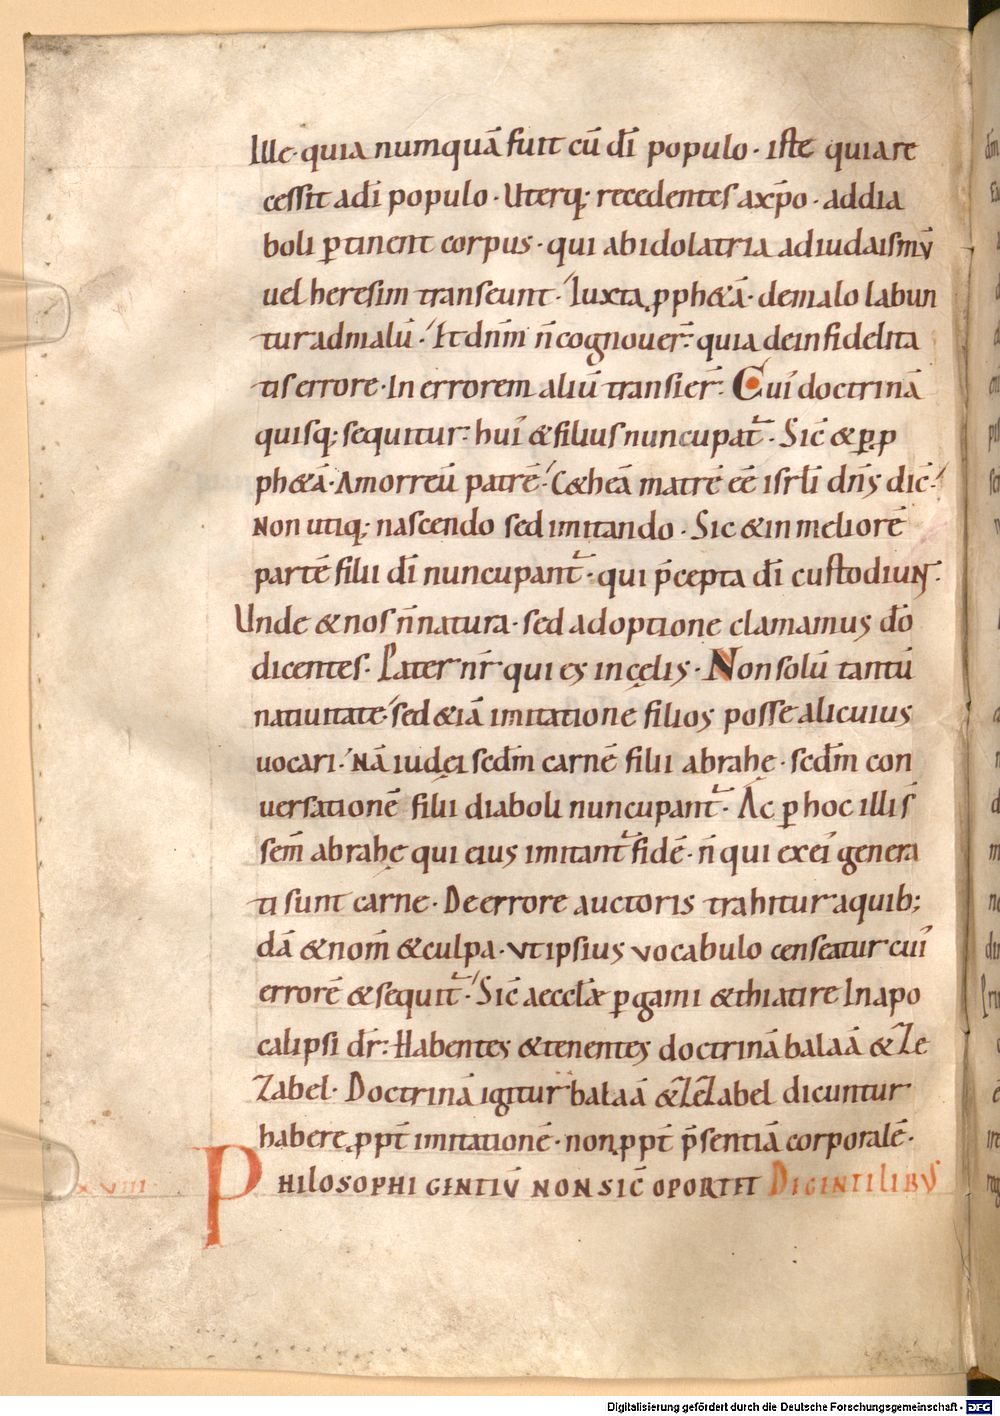 Ille· quia numquā fuit cū dī populo· iste quia re
cessit a dī populo· Uterq; recedentes a xp̄o· ad dia
boli ꝑtinent corpus· qui ab idolatria ad iudaismū
uel heresim transeunt· Iuxta ꝓph&ā· de malo labun
tur ad malū· Et dn̄m n̄ cognouer̄: quia de infidelita
tis errore· In errorem aliū transier̄: Cui' doctrinā
quisq; sequitur: hui' & filius nuncupat᷑· Sic̄ & ꝑ ꝓ
ph&ā· Amorreū patrē· C&heā matrē eē isrl̄i dn̄s dic̄·
Non utiq; nascendo sed imitando· Sic & in meliorē
partē filii dī nuncupant᷑· qui p̄cepta dī custodiunt·
Unde & nos n̄ natura· sed adoptione clamamus dō
dicentes· Pater nr̄ qui es in cęlis· Non solū tantū
natiuitate· sed &iā imitatione filios posse alicuius
uocari· Nā iudęi sedm̄ carnē filii abrahę· sedm̄ con
uersationē filii diaboli nuncupant᷑· Ac ꝑ hoc illi s̄
sem̄ abrahę qui eius imitant᷑ fidē· n̄ qui ex ei' genera
ti sunt carne· De errore auctoris trahitur a quib;
dā & nom̄ & culpa· vt ipsius vocabulo censeatur cui'
errorē & sequit᷑· Sic̄ aeccl̄æ ꝑgami & thiatire In apo
calipsi dr̄: Habentes & tenentes doctrinā balaā & Ie
zabel· Doctrinā igitur balaā & Iezabel dicuntur
habere ꝓpt̄ imitationē· non ꝓpt̄ p̄sentiā corporalē·
xviii· Philosophi gentiū non sic̄ oportet Di gintilibus
Digitalisierung gefördert durch die Deutsche Forschungsgemeinschaft - DFG